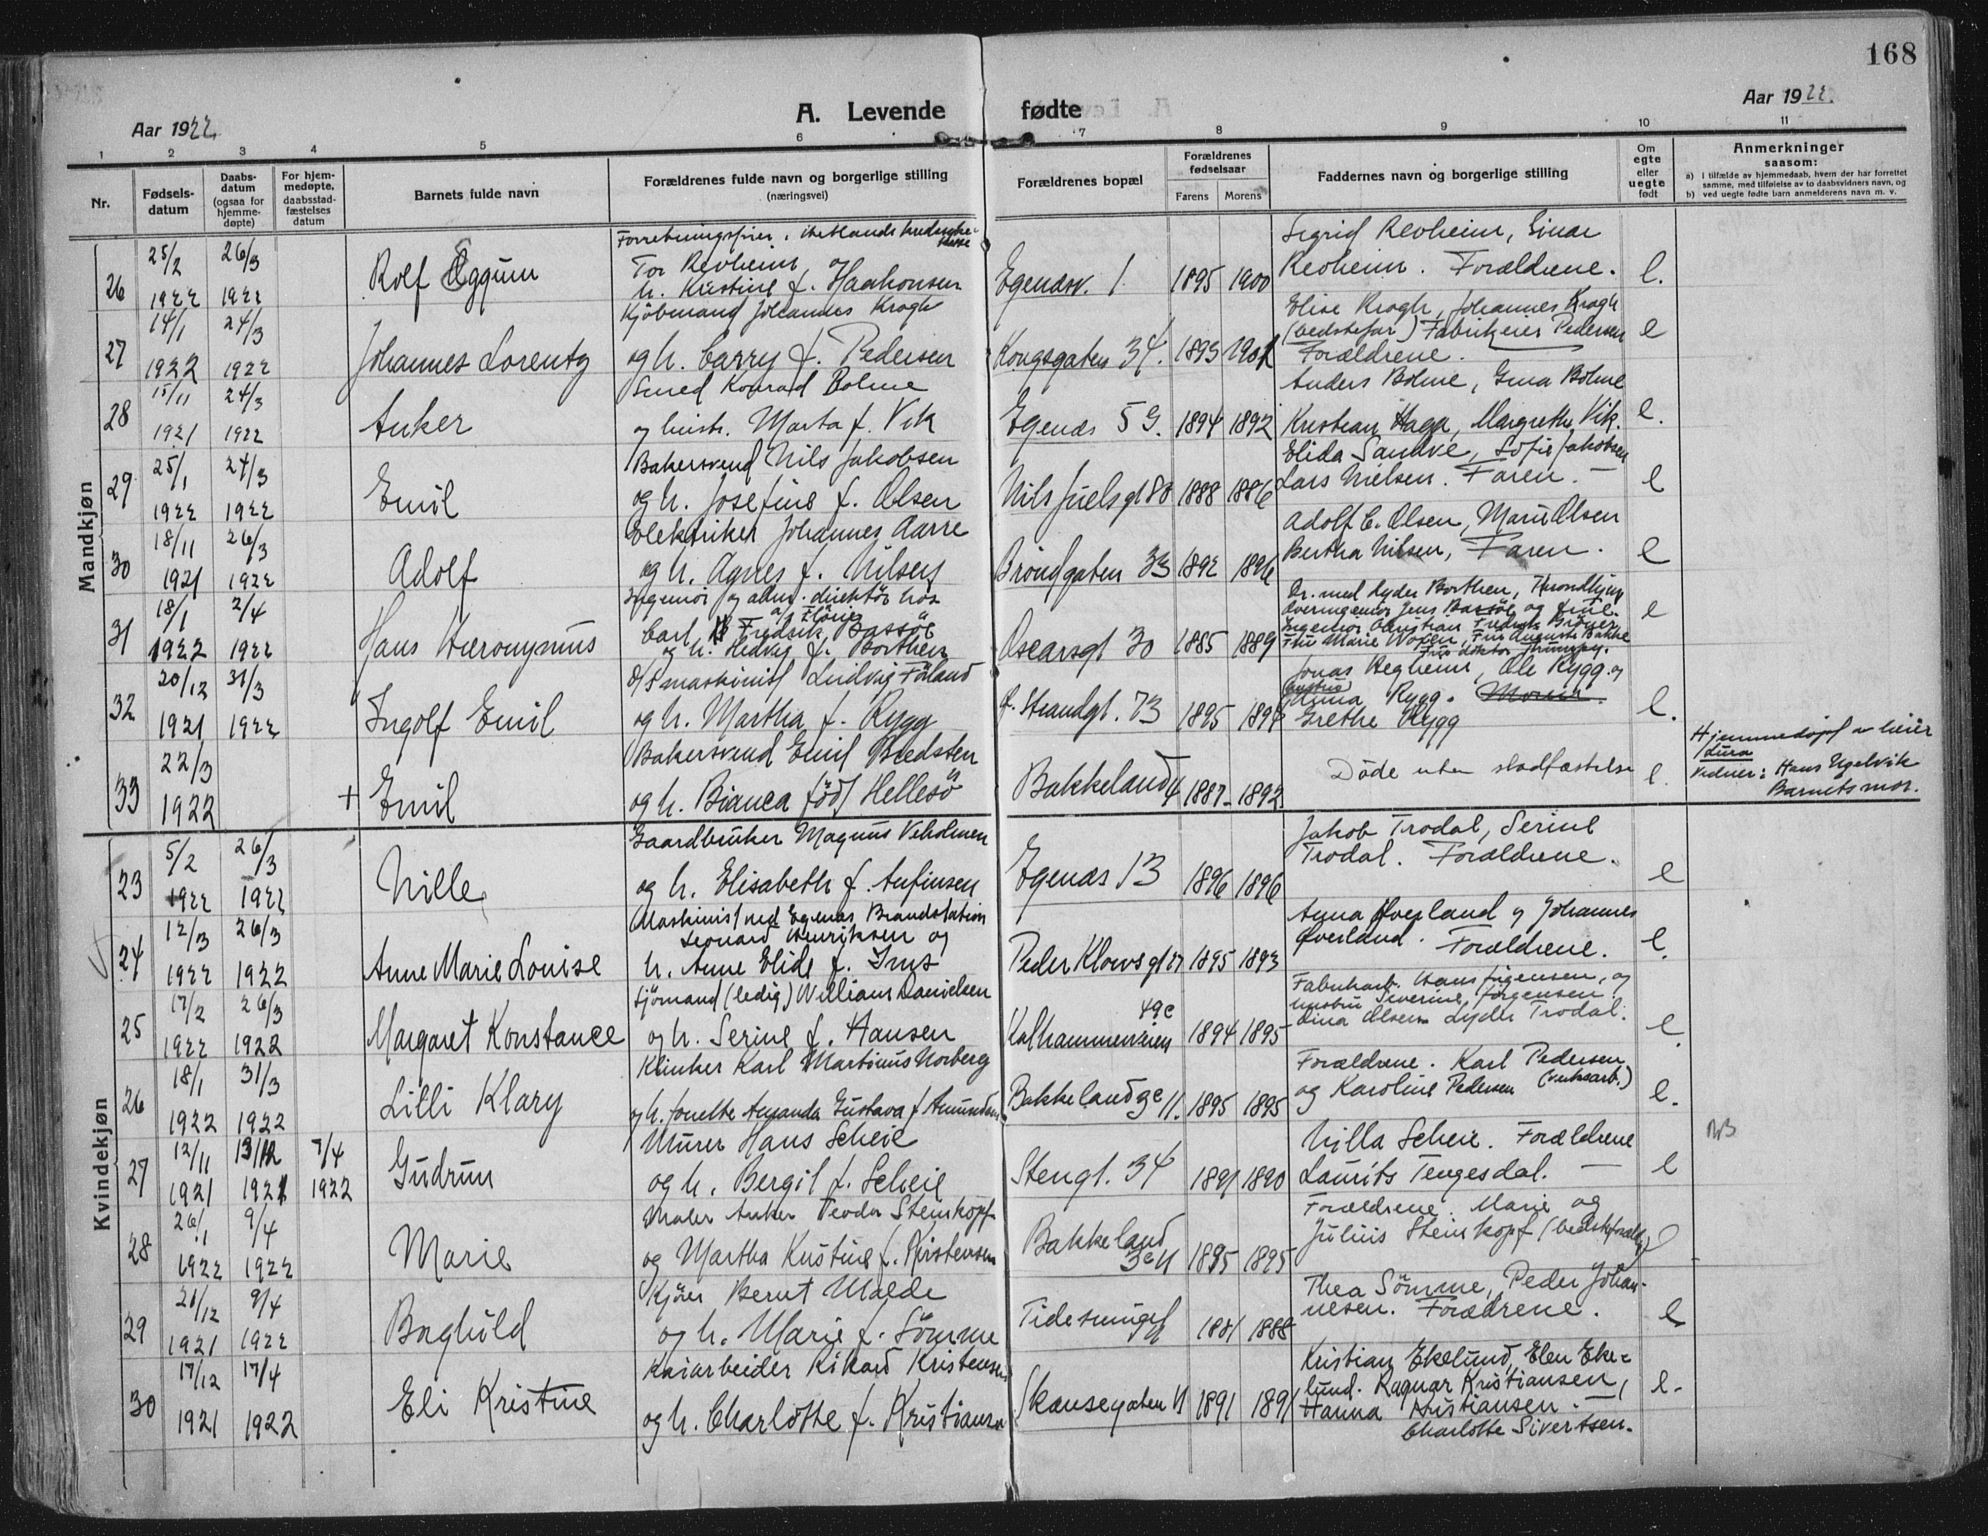 168
Aar 1922.
A. Levende fødte
Aar 1922.
1 2 3 4 5 6 7 8 9 10 11
Nr.
Fødsels-datum
Daabs-datum (ogsaa for hjemme-døpte)
For hjem-medøpte, daabsstad-fæstelses datum
Barnets fulde navn
Forældrenes fulde navn og borgerlige stilling
(næringsvei)
Forældrenes bopæl
Forældrenes fødselsaar
Farens Morens
Faddernes navn og borgerlige stilling
Om egte eller uegte født
Anmerkninger
saasom:
a) I tilfælde av hjemmedaab, hvem der har forrettet samme, med tilføielse av to daabsvidners navn, og
b) ved uegte fødte barn anmelderens navn m. v.
Mandkjøn
26 25/2 1922 26/3 1922 Rolf Eggum
Tor Revheim
og h. Kristine f. Haakonsen
Egenæsv. 1 1895 1900
Sigrid Revheim, Einar
Revheim. Forældrene. e.
27 14/1 1922 24/3 1922 Johannes Lorentz
Kjøbmand Johannes Krogh
og h. Carry f. Pedersen
Kongsgaten 34. 1893 1901
Elise Krogh, Johannes Krogh
(bedstefar) Fabrikeier Pedersen
Forældrene. e
28 15/11 1921 24/3 1922 Anker
Smed Konrad Bolme
og hustr. Marta f. Vik
Egenæs 5 G. 1894 1892
Anders Bolme, Gina Bolme
Kristian Haga, Margrethe Vik. e.
29 25/1 1922 24/3 1922 Emil
Bakersvend Nils Jakobsen
og h. Josefine f. Olsen
Nils Juelsgt 80 1888 1886
Elida Sandve, Sofie Jakobsen
Lars Nielsen. Faren. — e
30 18/11 1921 26/3 1922 Adolf
Elektriker Johannes Aarre
og h. Agnes f. Nilsen
Brøndgaten 33 1892 1896
Adolf C. Olsen, Marie Olsen
Bertha Nilsen, Faren. e
31 18/1 1922 2/4 1922 Hans Hieronymus
Ingeniør og adm. direktør hos
Carl Fredrik Bassøe
og h. Hedvig f. Borthen
Oscarsgt 30 1885 1889
Dr. med Lyder Borthen, Trondhjem
Overingeniør Jens Bassøe og frue.
Ingeniør Christian Fredrik Brøner
e
32 20/12 1921 31/3 1922 Ingolf Emil
D/S maskinist Ludvig Førland
og h. Martha f. Rygg
f. Strandgt. 73 1895 1897
Jonas Regheim, Ole Rygg og
hustru Anna Rygg. Moren.
Grethe Rygg e.
33 22/3 1922 + Emil
Bakersvend Emil Bredsten
og h. Bianca født Hellesö
Bakkeland 4 1887 – 1892
Döde uten stadfæstelse e.
Hjemmedöpt av
Vidner: Hans Ugelvik
Barnets mor.
Kvindekjøn
23 5/2 1922 26/3 1922 Nille
Gaardbruker Magnus Veholmen
og h. Elisabeth f. Anfinsen
Egenæs 13 1896 1896
Jakob Trodal, Serine
Trodal. Forældrene. e
24 12/3 1922 26/3 1922 Anne Marie Louise
Maskinist ved Egenæs Brandstation
Leonard Henriksen og
h. Anne Elide f.
Peder Klowsgt 27 1895 1893
Anna Överland og Johannes
Överland. Forældrene. e.
25 17/2 1922 26/3 1922 Margaret Konstance
Sjømand (ledig) William Danielsen
og h. Serine f. Hansen
Kalhammerveien 49c 1894 1895
Fabrikarb. Hans Jörgensen, og
hustru Severine Jörgensen.
Lina Olsen Lyder Trodal. e.
26 18/1 1922 31/3 1922 Lilli Klary
Klinker Karl Martinus Norberg
og h. Jonette Amanda Gustava f. Amundsen
Bakkelandgc 11. 1895 1895
Forældrene. Karl Pedersen
og Karoline Pedersen (verksarb.) e.
27 12/11 1921 13/12 1921 7/4 1922 Gudrun
Murer Hans Scheie
og h. Bergit f. Scheie
Stengt. 34 1891 1890
Villa Scheie. Forældrene
Laurits Tengesdal. — e
NB
28 26/1 1922 9/4 1922 Marie
Maler Anker Teodor Steinkopf
og Martha Kristine f. Kristensen
Bakkeland 3c 11 1895 1895
Forældrene. Marie og
Julius Steinkopf (bedsteforældre) e
29 21/12 1921 9/4 1922 Baghild
Kjører Bernt Malde
og h. Marie f. Sömme
1881 1888
Thea Sömme, Peder Johan-
nesen. Forældrene. e
30 17/12 1921 17/4 1922 Eli Kristine
Kaiarbeider Rikard Kristensen
og h. Charlotte f. Kristiansen
Skansegaten 11 1891 1891
Kristian Ekelund, Elen Eke-
lund. Ragnar Kristiansen,
Hanna Kristiansen. —
Charlotte Sivertsen. e.